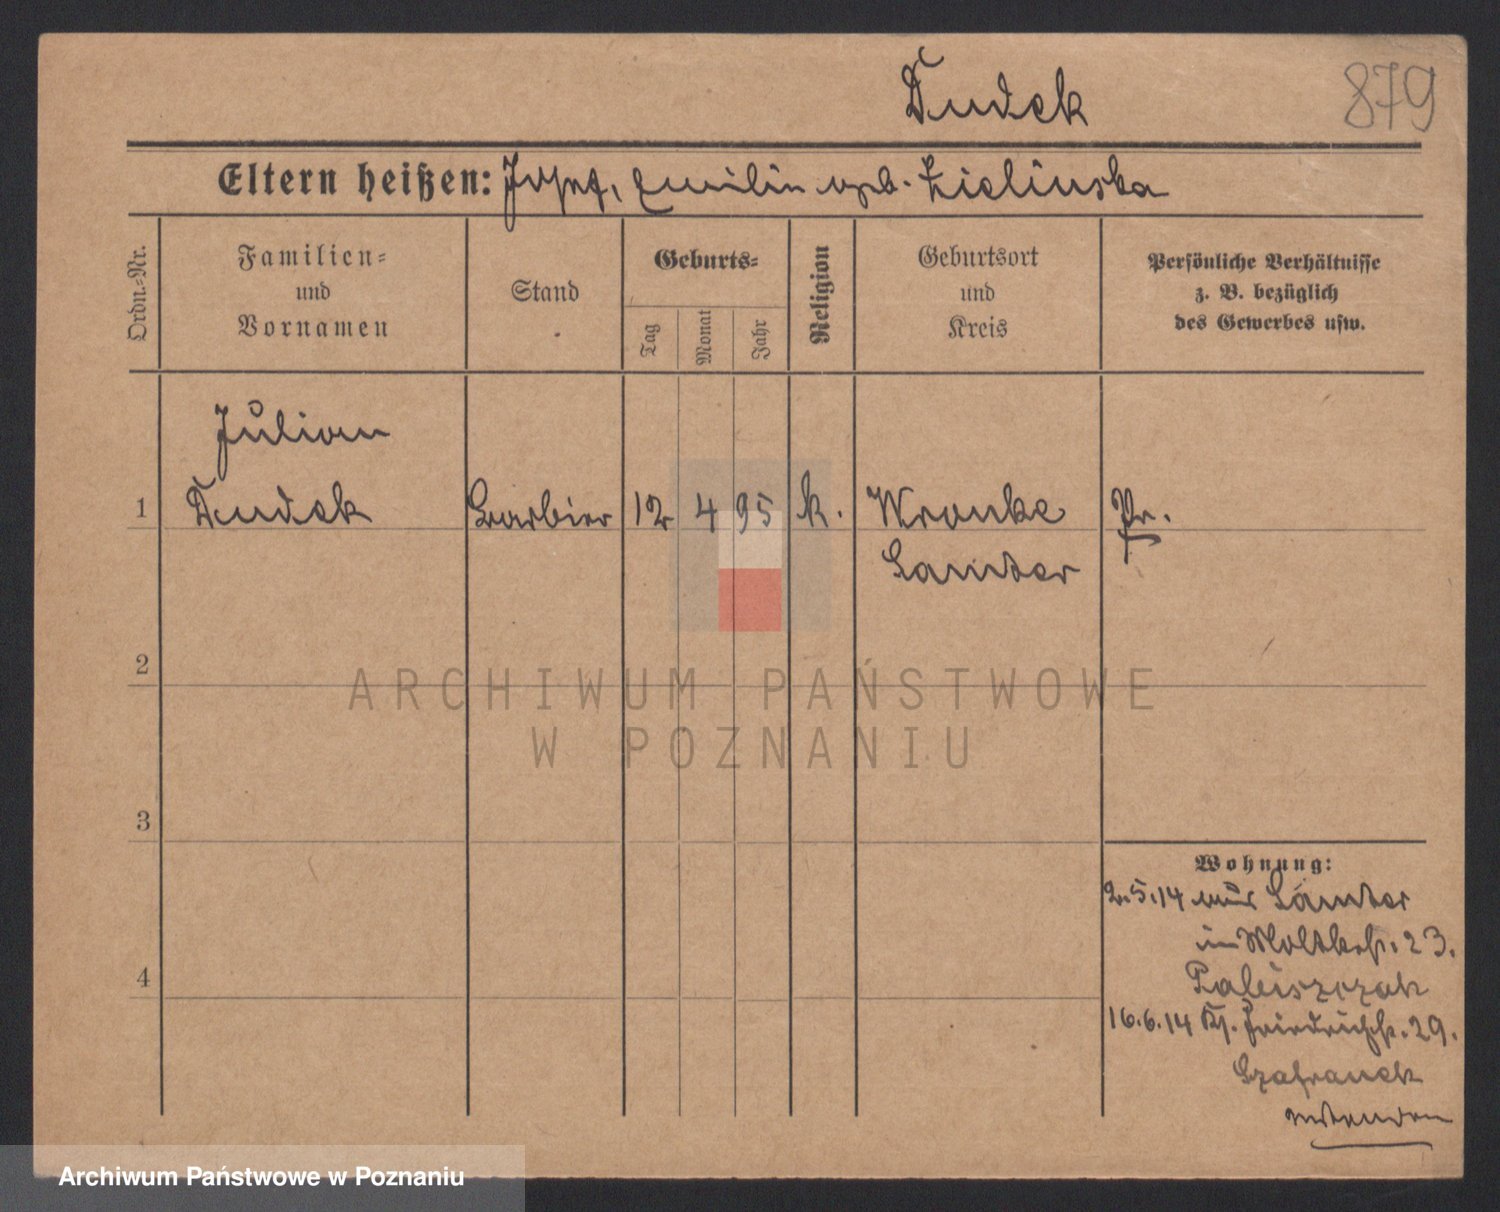 Dudek
879
Eltern heißen: Josef, Emilie geb. Zielinska
Ordn.-Nr.
Familien-
und
Vornamen
Stand
Geburts-
Tag
Monat
Jahr
Religion
Geburtsort
und
Kreis
Persönliche Verhältnisse
z. B. bezüglich
des Gewerbes usw.
Julian
1 Dudek Barbier 12 4 95 k. Wronke Pr.
Samter
2
3
4
Wohnung:
2.5.14 aus Samter
in Moltkestr. 23.
16.6.14 Kl. Friedrichstr. 29.
Szafranek
ARCHIWUM PAŃSTWOWE
W POZNANIU
Archiwum Państwowe w Poznaniu